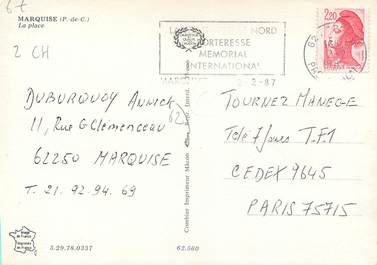 67
MARQUISE (P.-de-C.)
La place
2 CH
NORD
FORTERESSE
MEMORIAL
INTERNATIONAL
2-2-87
2,20
62
DUBURQUOY ANNICK
11, Rue G Clémenceau
62250 MARQUISE
T. 21.92.94.69
62
Combier Imprimeur Mâcon
TOURNEZ MANEGE
Télé 7 Jours T.F.1
CEDEX 9645
PARIS 75715
Image de France
Imprimée en France
3.29.78.0337
62.560